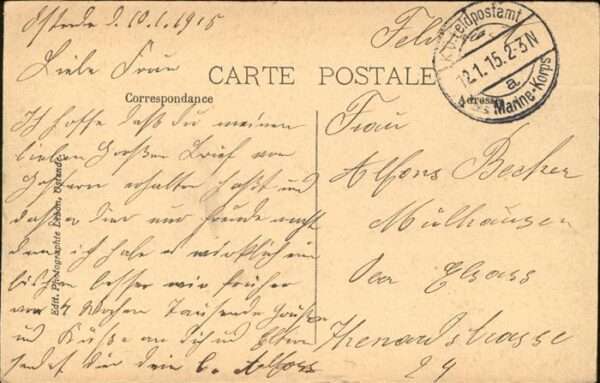 Ostende d. 10.1.1915
Liebe Frau
Ich hoffe daß du meinen
lieben Großen Brief von
Gestern erhalten hast und
daß er dir nur Freude macht
denn ich habe es wirklich ein
bischen besser wie früher
vor 4 Wochen Tausende Grüße
und Küße an Dich und
sendet dir dein l. Alfons
CARTE POSTALE
Correspondance
Adresse
Edit. Photographie Lebon, Ostende.
K.D. Feldpostamt
12.1.15.2-3N
a
des Marine-Korps
Frau
Alfons Becker
Mülhausen
Elsass
Thenardstrasse
24